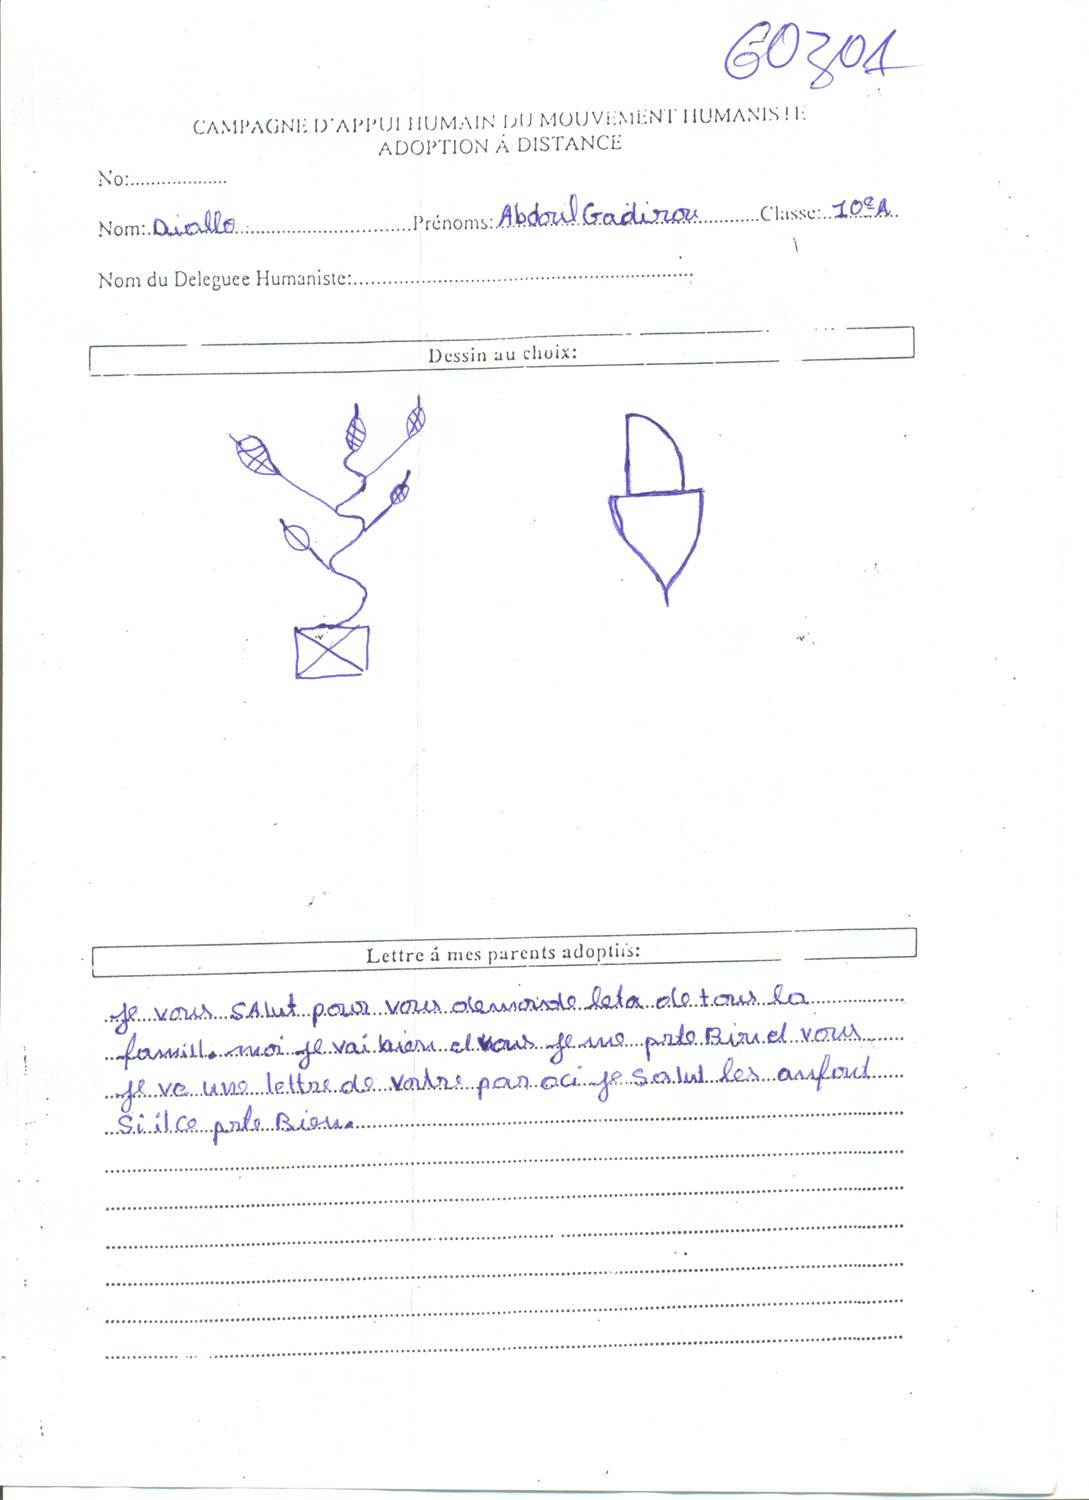 60301
CAMPAGNE D'APPUI HUMAIN DU MOUVEMENT HUMANISTE
ADOPTION Á DISTANCE
No:...................
Nom: Diallo ................................Prénoms: Abdoul Gadirou ...........Classe: 10e A
Nom du Deleguee Humaniste:..................................................................
Dessin au choix:
Lettre á mes parents adoptifs:
Je vous SAlut pour vous demande leta de tous la
famill. moi je vai bien et vous je me prte Bien et vous
je ve une lettre de vortre par aci je Salut les anfout
Si il ce prte Bien.